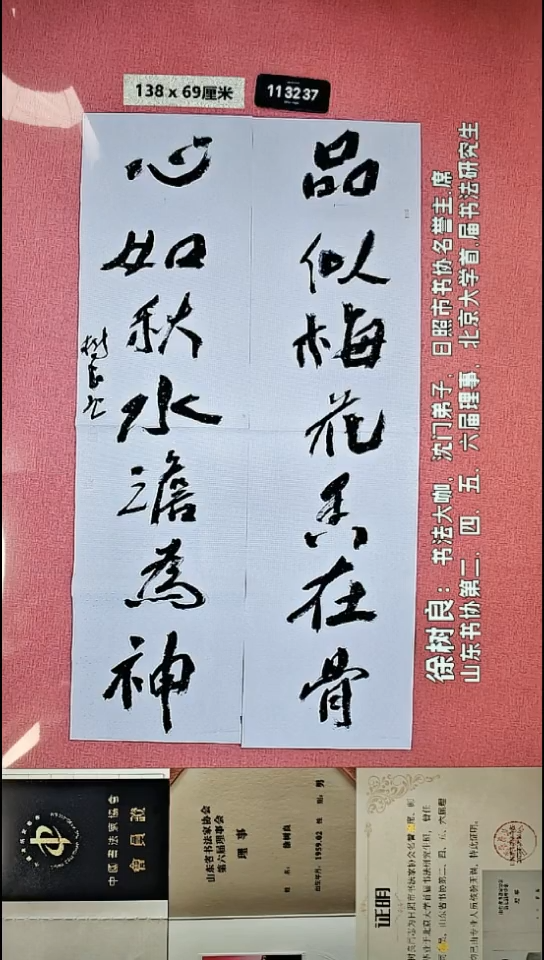 138 x 69厘米
113237
品似梅花香在骨
心如秋水澹為神
樹良书
徐树良：书法大咖，沈门弟子，日照市书协名誉主席
山东书协第二、四、五、六届理事，北京大学首届书法研究生
中國書法家協會
會員證
山东省书法家协会
第六届理事会
理 事
姓 名： 徐树良
性 别： 男
出生年月： 1959.02
证明